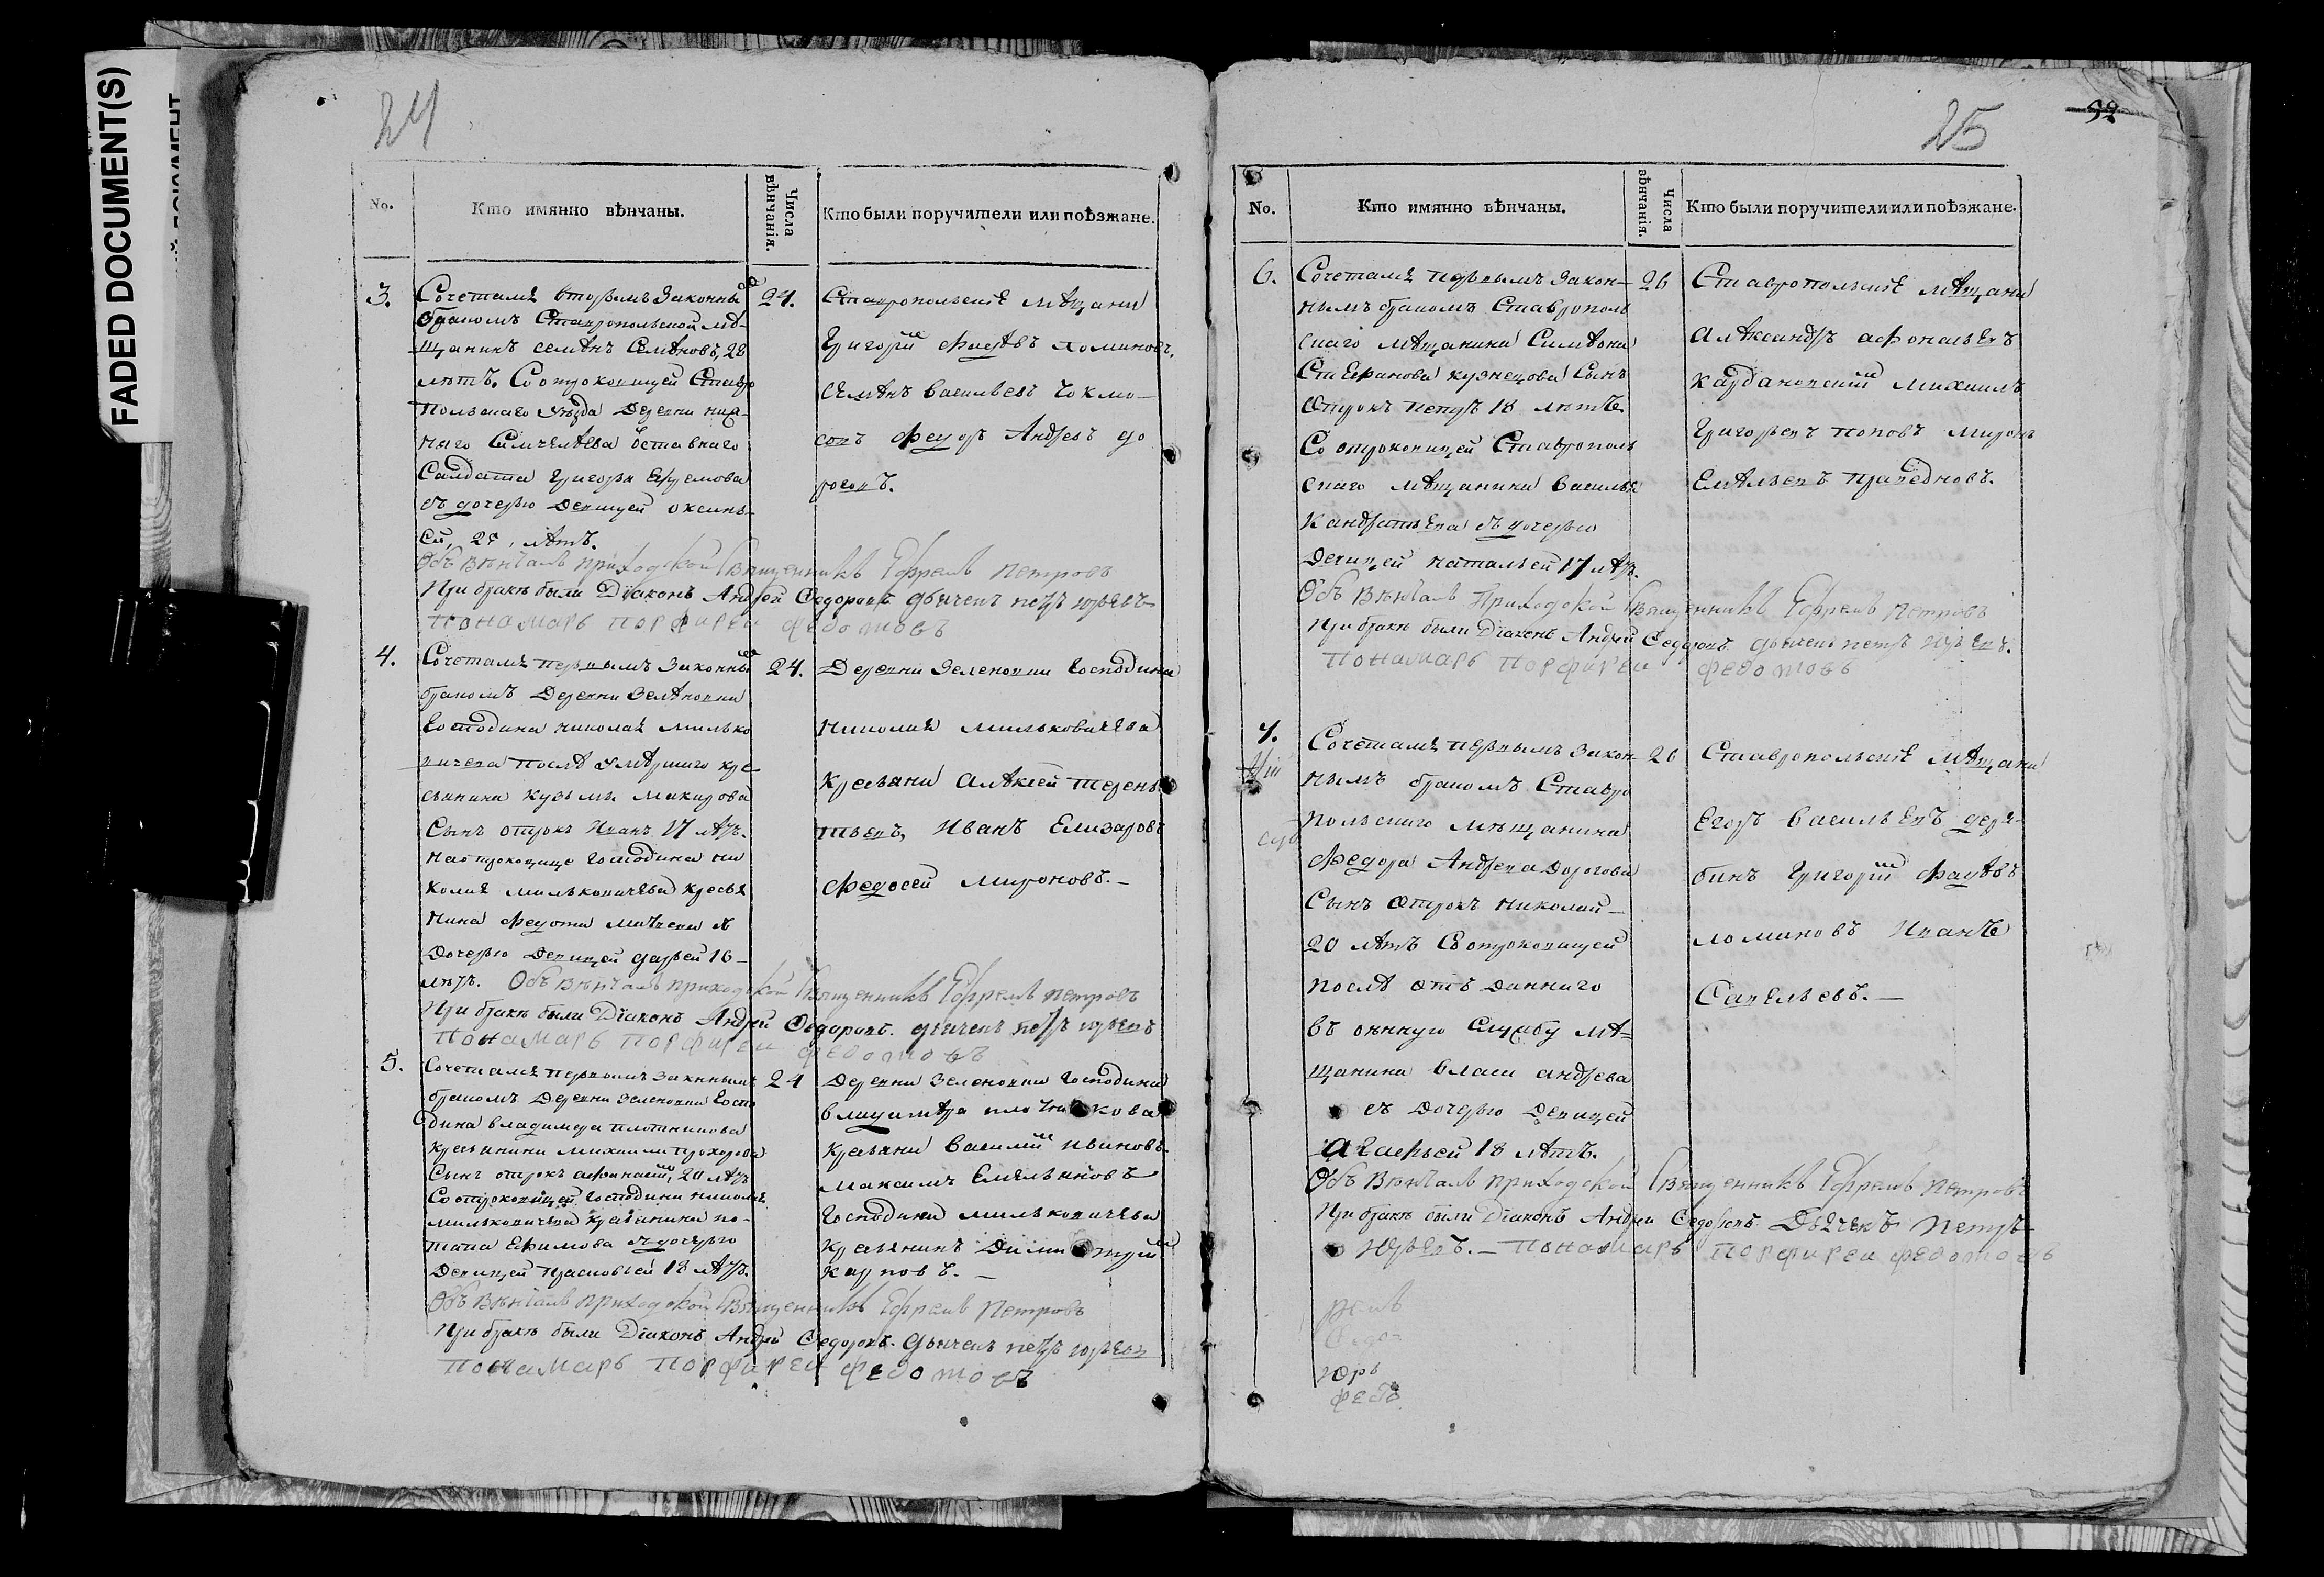 FADED DOCUMENT(S)
24
No.
Кто имянно вѣнчаны.
Числа вѣнчанія.
Кто были поручители или поѣзжане.
3.
Сочетался вторымъ законны
бракомъ Ставропольской мѣ-
щанинъ семѣнъ Семѣновъ, 28
лѣтъ. Со отроковицей Ставро
польскаго уѣзда Деревни
отставнаго
Салдата Григорья Ефремова
съ дочерью Девицей оксинь-
ей, лѣтъ.
24.
Ставропольскіе мѣщани
Григорій Фадѣевъ ломиновъ,
семѣнъ васильевъ чокмо-
совъ федоръ Андревъ до
роговъ.
Объ вѣнчалъ приходской Священникъ Ефремъ Петровъ
При бракѣ были Діаконъ Андрей Федоровъ дьячекъ петръ юрьевъ
понамарь порфирей федотовъ
4.
Сочетался первымъ законны
бракомъ Деревни Зелѣновки
Господина николая милько
вичева послѣ умѣршаго кре
сьянина кузьмы макарова
Сынъ отрокъ Иванъ 17 лѣтъ.
На отроковице Господина ни
колая мильковичева кресья
нина федота съ
дочерью Девицей дарьей 16-
лѣтъ.
24.
Деревни Зеленовки Господина
Николая мильковичева
кресьяни Алѣксей терень
тьевъ, Иванъ Елизаровъ
федосей мироновъ.-
Объ вѣнчалъ приходской Священникъ Ефремъ петровъ
При бракѣ были Діаконъ Андрей Федоровъ. дьячекъ петръ юрьевъ
понамарь порфирей федотовъ
5.
Сочетался первымъ законнымъ
бракомъ Деревни Зеленовки Госпо
дина владимера плотникова
кресьянина михаила прохорова
Сынъ отрокъ афонасій, 20 лѣтъ
Со отроковицей Господина николая
мильковичева кресьянина по-
тапа Ефимова съ дочерью
Девицей прасковьей 18 лѣтъ.
24
Деревни Зеленовки Господина
владимѣра плотникова
кресьяни василій ивановъ.
максимъ Емельяновъ
Господина мильковичева
кресьянинъ Димитрій
карповъ.-
Объ вѣнчалъ приходской Священникъ Ефремъ Петровъ
При бракѣ были Діаконъ Андрей Федоровъ. дьячекъ петръ юрьевъ
понамарь порфирей федотовъ
25
92
No.
Кто имянно вѣнчаны.
Числа вѣнчанія.
Кто были поручители или поѣзжане.
6.
Сочетался первымъ закон-
нымъ бракомъ Ставрополь
скаго мѣщанина Симѣона
Стефанова кузнецова Сынъ
Отрокъ петръ 18 лѣтъ.
Со отроковицей Ставрополь
скаго мѣщанина василья
кандратьева съ дочерью
Девицей натальей 17 лѣтъ.
26
Ставропольскіе мѣщани
Алѣксандръ афонасьевъ
кардановскій михаилъ
Григорьевъ поповъ миронъ
Емѣльевъ праведновъ.
Объ вѣнчалъ Приходской Священникъ Ефремъ Петровъ
При бракѣ были Діаконъ Андрей Федоровъ. дьячекъ петръ юрьевъ.
понамарь порфирей федотовъ
7.
Сочетался первымъ закон
нымъ бракомъ Ставро
польскаго мѣщанина
федора Андрева дорогова
Сынъ отрокъ николай-
20 лѣтъ Со отроковицей
послѣ отъ даннаго
въ оенную службу мѣ=
щанина власа андрева
съ дочерью Девицей
агафьей 18 лѣтъ.
26
Ставропольскіе мѣщани
Егоръ васильевъ деря-
бинъ Григорій фадѣевъ
ломиновъ Иванъ
Савельевъ.-
Объ вѣнчалъ приходской Священникъ Ефремъ петровъ
При бракѣ были Діаконъ Андрей Федоровъ. Дьячекъ петръ
юрьевъ.- понамарь порфирей федотовъ
ремъ
Федо-
юрь
федо